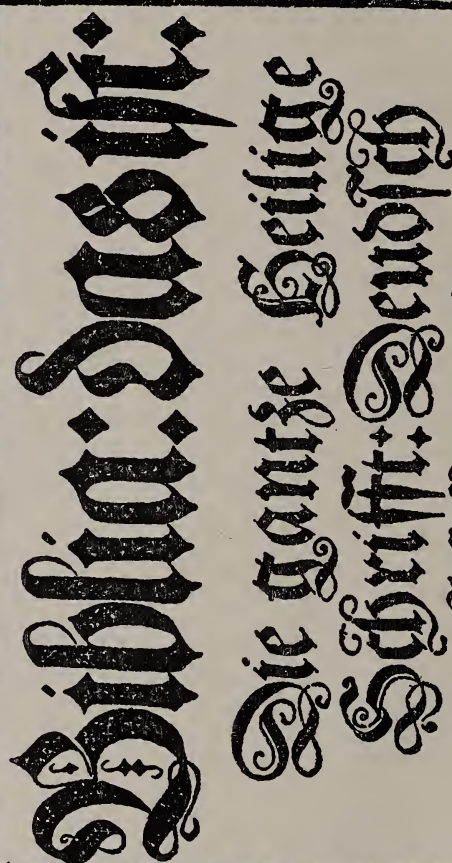 Biblia: das iſt:
Die gantze Heilige
Schrifft: Deudſch